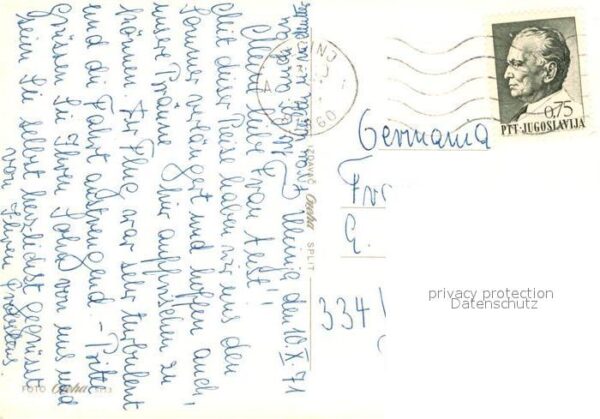 Ulcinj den 10.X.71
Liebe Frau
Mit dieser Reise haben wir uns den
Sommer verlängert und hoffen auch,
unsere Bräune hier auffrischen zu
können. Der Flug war sehr turbulent
und die Fahrt anstrengend. – Bitte
Grüssen Sie Ihren Sohn von uns und
seien Sie selbst herzlichst gegrüsst
von Ihren
FOTO
IZDAVAČ SPLIT
0,75
PTT-JUGOSLAVIJA
Germania
334
privacy protection
Datenschutz